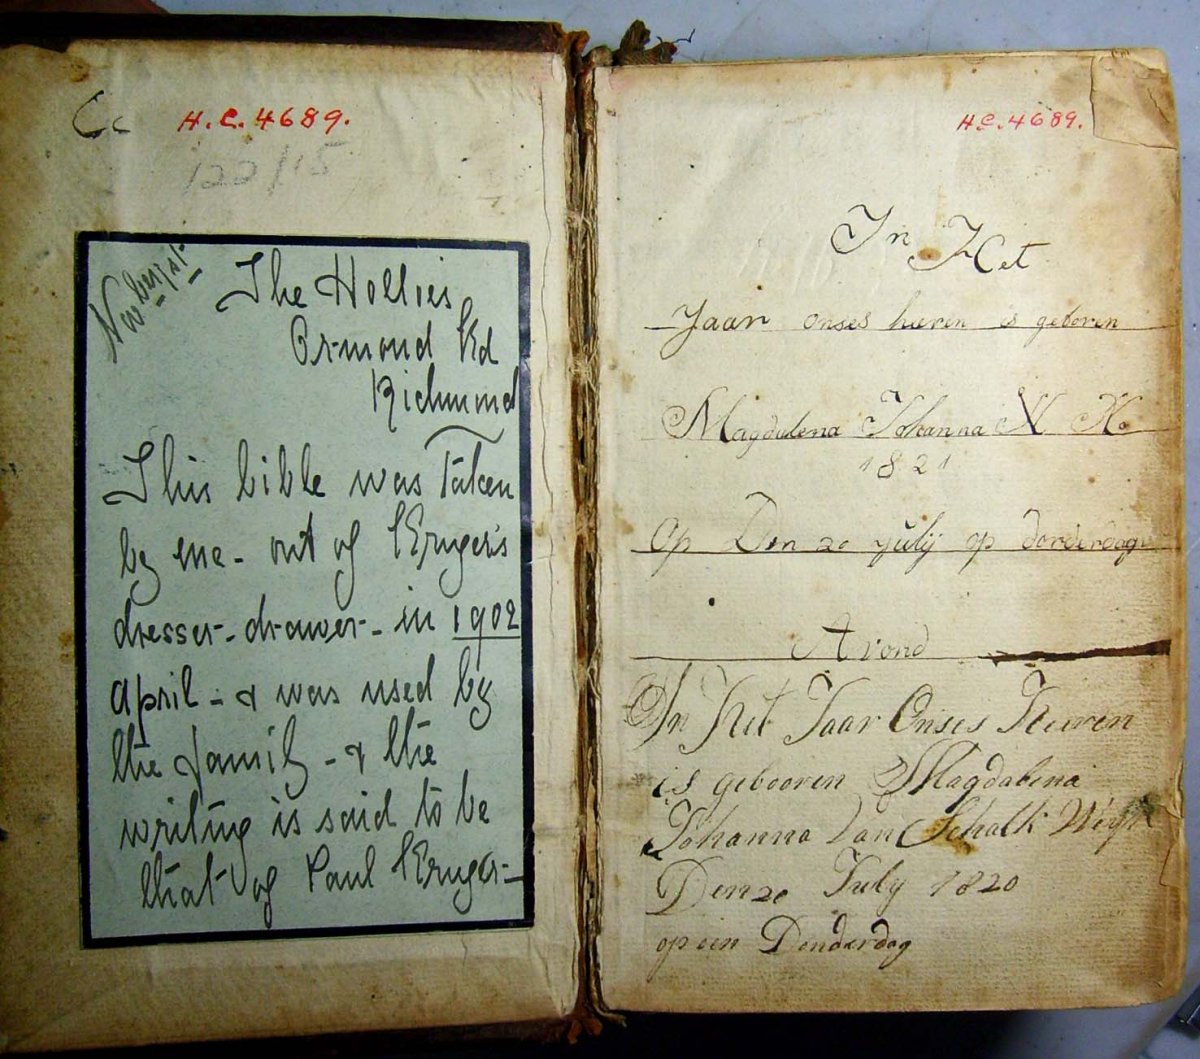 H.C.4689.
122/15
Novber 1st
The Hollies
Ormond Rd
Richmond
This bible was Taken
by me - out of Kruger's
dresser - drawer - in 1902
april - & was used by
the family - & the
writing is said to be
that of Paul Kruger -
H.C.4689.
In Het
Jaar onses heren is geboren
Magdalena Johanna
1821
Op Den 20 july op dorderdag
Avond
In Het Jaar Onses Heeren
is gebooren Magdalena
Johanna Van Schalk Wijk
Den 20 July 1820
op een Donderdag